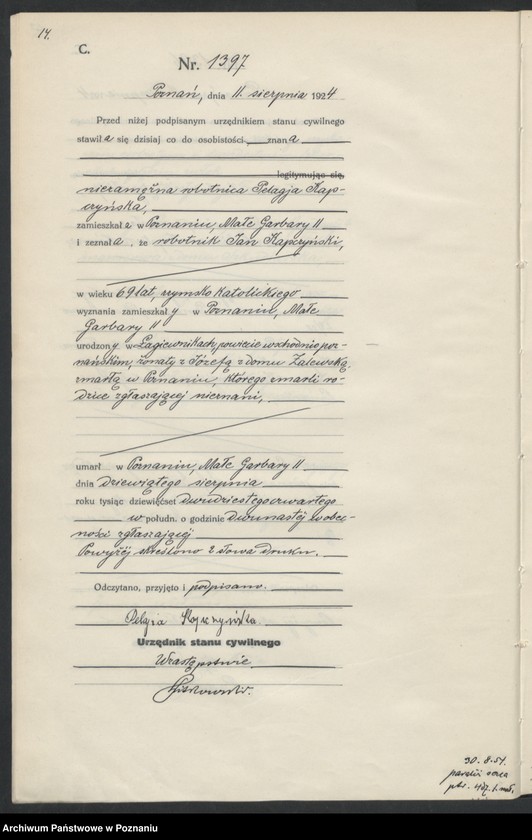 14.
C.
Nr. 1397.
Poznań, dnia 11. sierpnia 1924
Przed niżej podpisanym urzędnikiem stanu cywilnego
stawiła się dzisiaj co do osobistości znana
legitymując się,
niezamężna robotnica Pelagja Kap-
czyńska,
zamieszkała w Poznaniu, Małe Garbary 11
i zeznała, że robotnik Jan Kapczyński,
w wieku 69 lat, rzymsko katolickiego
wyznania zamieszkały w Poznaniu, Małe
Garbary 11
urodzony w Łagiewnikach, powiecie wschodnio poz-
nańskim, żonaty z Józefą z domu Zalewską,
zmarłą w Poznaniu, którego zmarli ro-
dzice zgłaszającej nieznani,
umarł w Poznaniu, Małe Garbary 11
dnia dziewiątego sierpnia
roku tysiąc dziewięćset dwudziestego czwartego
w połudn. o godzinie dwunastej w obec-
ności zgłaszającej
Powyżej skreślono 2 słowa druku.
Odczytano, przyjęto i podpisano.
Pelagia Kapczyńska.
Urzędnik stanu cywilnego
W zastępstwie
30. 8. 54.
Archiwum Państwowe w Poznaniu